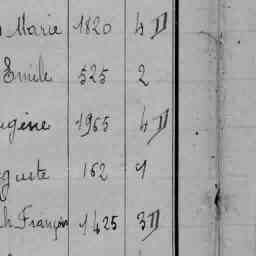 Marie 1820 4
Emile 525 2
ugène 1965 4
guste 162 1
h François 1425 3